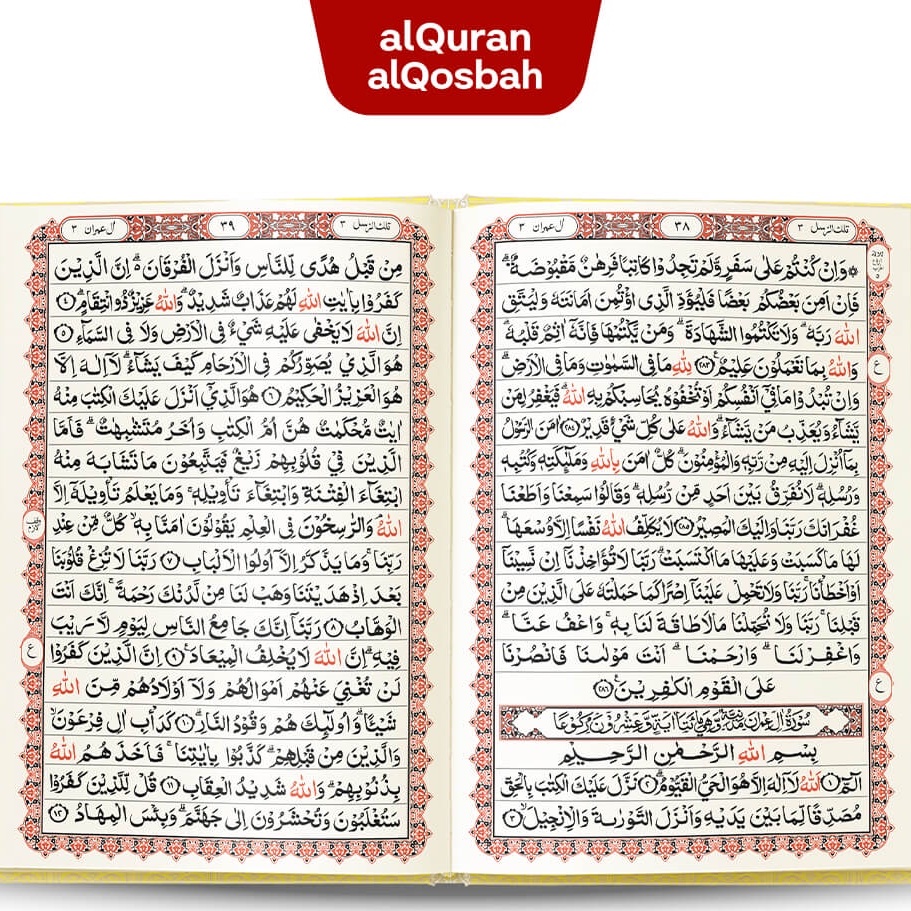 alQuran
alQosbah
تلك الرسل ٣
٣٨
اٰل عمران ٣
وَاِنْ كُنْتُمْ عَلٰى سَفَرٍ وَّلَمْ تَجِدُوْا كَاتِبًا فَرِهٰنٌ مَّقْبُوْضَةٌ ۗ
فَاِنْ اَمِنَ بَعْضُكُمْ بَعْضًا فَلْيُؤَدِّ الَّذِى اؤْتُمِنَ اَمَانَتَهٗ وَلْيَتَّقِ
اللّٰهَ رَبَّهٗ ۗ وَلَا تَكْتُمُوا الشَّهَادَةَ ۗ وَمَنْ يَّكْتُمْهَا فَاِنَّهٗٓ اٰثِمٌ قَلْبُهٗ ۗ
وَاللّٰهُ بِمَا تَعْمَلُوْنَ عَلِيْمٌ ۝٢٨٣ لِلّٰهِ مَا فِى السَّمٰوٰتِ وَمَا فِى الْاَرْضِ ۗ
وَاِنْ تُبْدُوْا مَا فِيْٓ اَنْفُسِكُمْ اَوْ تُخْفُوْهُ يُحَاسِبْكُمْ بِهِ اللّٰهُ ۗ فَيَغْفِرُ لِمَنْ
يَّشَاۤءُ وَيُعَذِّبُ مَنْ يَّشَاۤءُ ۗ وَاللّٰهُ عَلٰى كُلِّ شَيْءٍ قَدِيْرٌ ۝٢٨٤ اٰمَنَ الرَّسُوْلُ
بِمَآ اُنْزِلَ اِلَيْهِ مِنْ رَّبِّهٖ وَالْمُؤْمِنُوْنَ ۗ كُلٌّ اٰمَنَ بِاللّٰهِ وَمَلٰۤىِٕكَتِهٖ وَكُتُبِهٖ
وَرُسُلِهٖ ۗ لَا نُفَرِّقُ بَيْنَ اَحَدٍ مِّنْ رُّسُلِهٖ ۗ وَقَالُوْا سَمِعْنَا وَاَطَعْنَا
غُفْرَانَكَ رَبَّنَا وَاِلَيْكَ الْمَصِيْرُ ۝٢٨٥ لَا يُكَلِّفُ اللّٰهُ نَفْسًا اِلَّا وُسْعَهَا ۗ
لَهَا مَا كَسَبَتْ وَعَلَيْهَا مَا اكْتَسَبَتْ ۗ رَبَّنَا لَا تُؤَاخِذْنَآ اِنْ نَّسِيْنَآ
اَوْ اَخْطَأْنَا ۚ رَبَّنَا وَلَا تَحْمِلْ عَلَيْنَآ اِصْرًا كَمَا حَمَلْتَهٗ عَلَى الَّذِيْنَ مِنْ
قَبْلِنَا ۚ رَبَّنَا وَلَا تُحَمِّلْنَا مَا لَا طَاقَةَ لَنَا بِهٖ ۚ وَاعْفُ عَنَّا ۗ
وَاغْفِرْ لَنَا ۗ وَارْحَمْنَا ۗ اَنْتَ مَوْلٰىنَا فَانْصُرْنَا
عَلَى الْقَوْمِ الْكٰفِرِيْنَ ۝٢٨٦
بِسْمِ اللّٰهِ الرَّحْمٰنِ الرَّحِيْمِ
الۤمّۤ ۝١ اللّٰهُ لَآ اِلٰهَ اِلَّا هُوَ الْحَيُّ الْقَيُّوْمُ ۝٢ نَزَّلَ عَلَيْكَ الْكِتٰبَ بِالْحَقِّ
مُصَدِّقًا لِّمَا بَيْنَ يَدَيْهِ وَاَنْزَلَ التَّوْرٰىةَ وَالْاِنْجِيْلَ ۝٣
ع
ع
تلك الرسل ٣
٣٩
اٰل عمران ٣
مِنْ قَبْلُ هُدًى لِّلنَّاسِ وَاَنْزَلَ الْفُرْقَانَ ۗ اِنَّ الَّذِيْنَ
كَفَرُوْا بِاٰيٰتِ اللّٰهِ لَهُمْ عَذَابٌ شَدِيْدٌ ۗ وَاللّٰهُ عَزِيْزٌ ذُو انْتِقَامٍ ۝٤
اِنَّ اللّٰهَ لَا يَخْفٰى عَلَيْهِ شَيْءٌ فِى الْاَرْضِ وَلَا فِى السَّمَاۤءِ ۝٥
هُوَ الَّذِيْ يُصَوِّرُكُمْ فِى الْاَرْحَامِ كَيْفَ يَشَاۤءُ ۗ لَآ اِلٰهَ اِلَّا
هُوَ الْعَزِيْزُ الْحَكِيْمُ ۝٦ هُوَ الَّذِيْٓ اَنْزَلَ عَلَيْكَ الْكِتٰبَ مِنْهُ
اٰيٰتٌ مُّحْكَمٰتٌ هُنَّ اُمُّ الْكِتٰبِ وَاُخَرُ مُتَشٰبِهٰتٌ ۗ فَاَمَّا
الَّذِيْنَ فِيْ قُلُوْبِهِمْ زَيْغٌ فَيَتَّبِعُوْنَ مَا تَشَابَهَ مِنْهُ
ابْتِغَاۤءَ الْفِتْنَةِ وَابْتِغَاۤءَ تَأْوِيْلِهٖ ۚ وَمَا يَعْلَمُ تَأْوِيْلَهٗٓ اِلَّا
اللّٰهُ ۘ وَالرّٰسِخُوْنَ فِى الْعِلْمِ يَقُوْلُوْنَ اٰمَنَّا بِهٖ ۙ كُلٌّ مِّنْ عِنْدِ
رَبِّنَا ۚ وَمَا يَذَّكَّرُ اِلَّآ اُولُوا الْاَلْبَابِ ۝٧ رَبَّنَا لَا تُزِغْ قُلُوْبَنَا
بَعْدَ اِذْ هَدَيْتَنَا وَهَبْ لَنَا مِنْ لَّدُنْكَ رَحْمَةً ۚ اِنَّكَ اَنْتَ
الْوَهَّابُ ۝٨ رَبَّنَآ اِنَّكَ جَامِعُ النَّاسِ لِيَوْمٍ لَّا رَيْبَ
فِيْهِ ۗ اِنَّ اللّٰهَ لَا يُخْلِفُ الْمِيْعَادَ ۝٩ اِنَّ الَّذِيْنَ كَفَرُوْا
لَنْ تُغْنِيَ عَنْهُمْ اَمْوَالُهُمْ وَلَآ اَوْلَادُهُمْ مِّنَ اللّٰهِ
شَيْـًٔا ۗ وَاُولٰۤىِٕكَ هُمْ وَقُوْدُ النَّارِ ۝١٠ كَدَأْبِ اٰلِ فِرْعَوْنَ ۙ
وَالَّذِيْنَ مِنْ قَبْلِهِمْ ۗ كَذَّبُوْا بِاٰيٰتِنَا ۚ فَاَخَذَهُمُ اللّٰهُ
بِذُنُوْبِهِمْ ۗ وَاللّٰهُ شَدِيْدُ الْعِقَابِ ۝١١ قُلْ لِّلَّذِيْنَ كَفَرُوْا
سَتُغْلَبُوْنَ وَتُحْشَرُوْنَ اِلٰى جَهَنَّمَ ۗ وَبِئْسَ الْمِهَادُ ۝١٢
ع